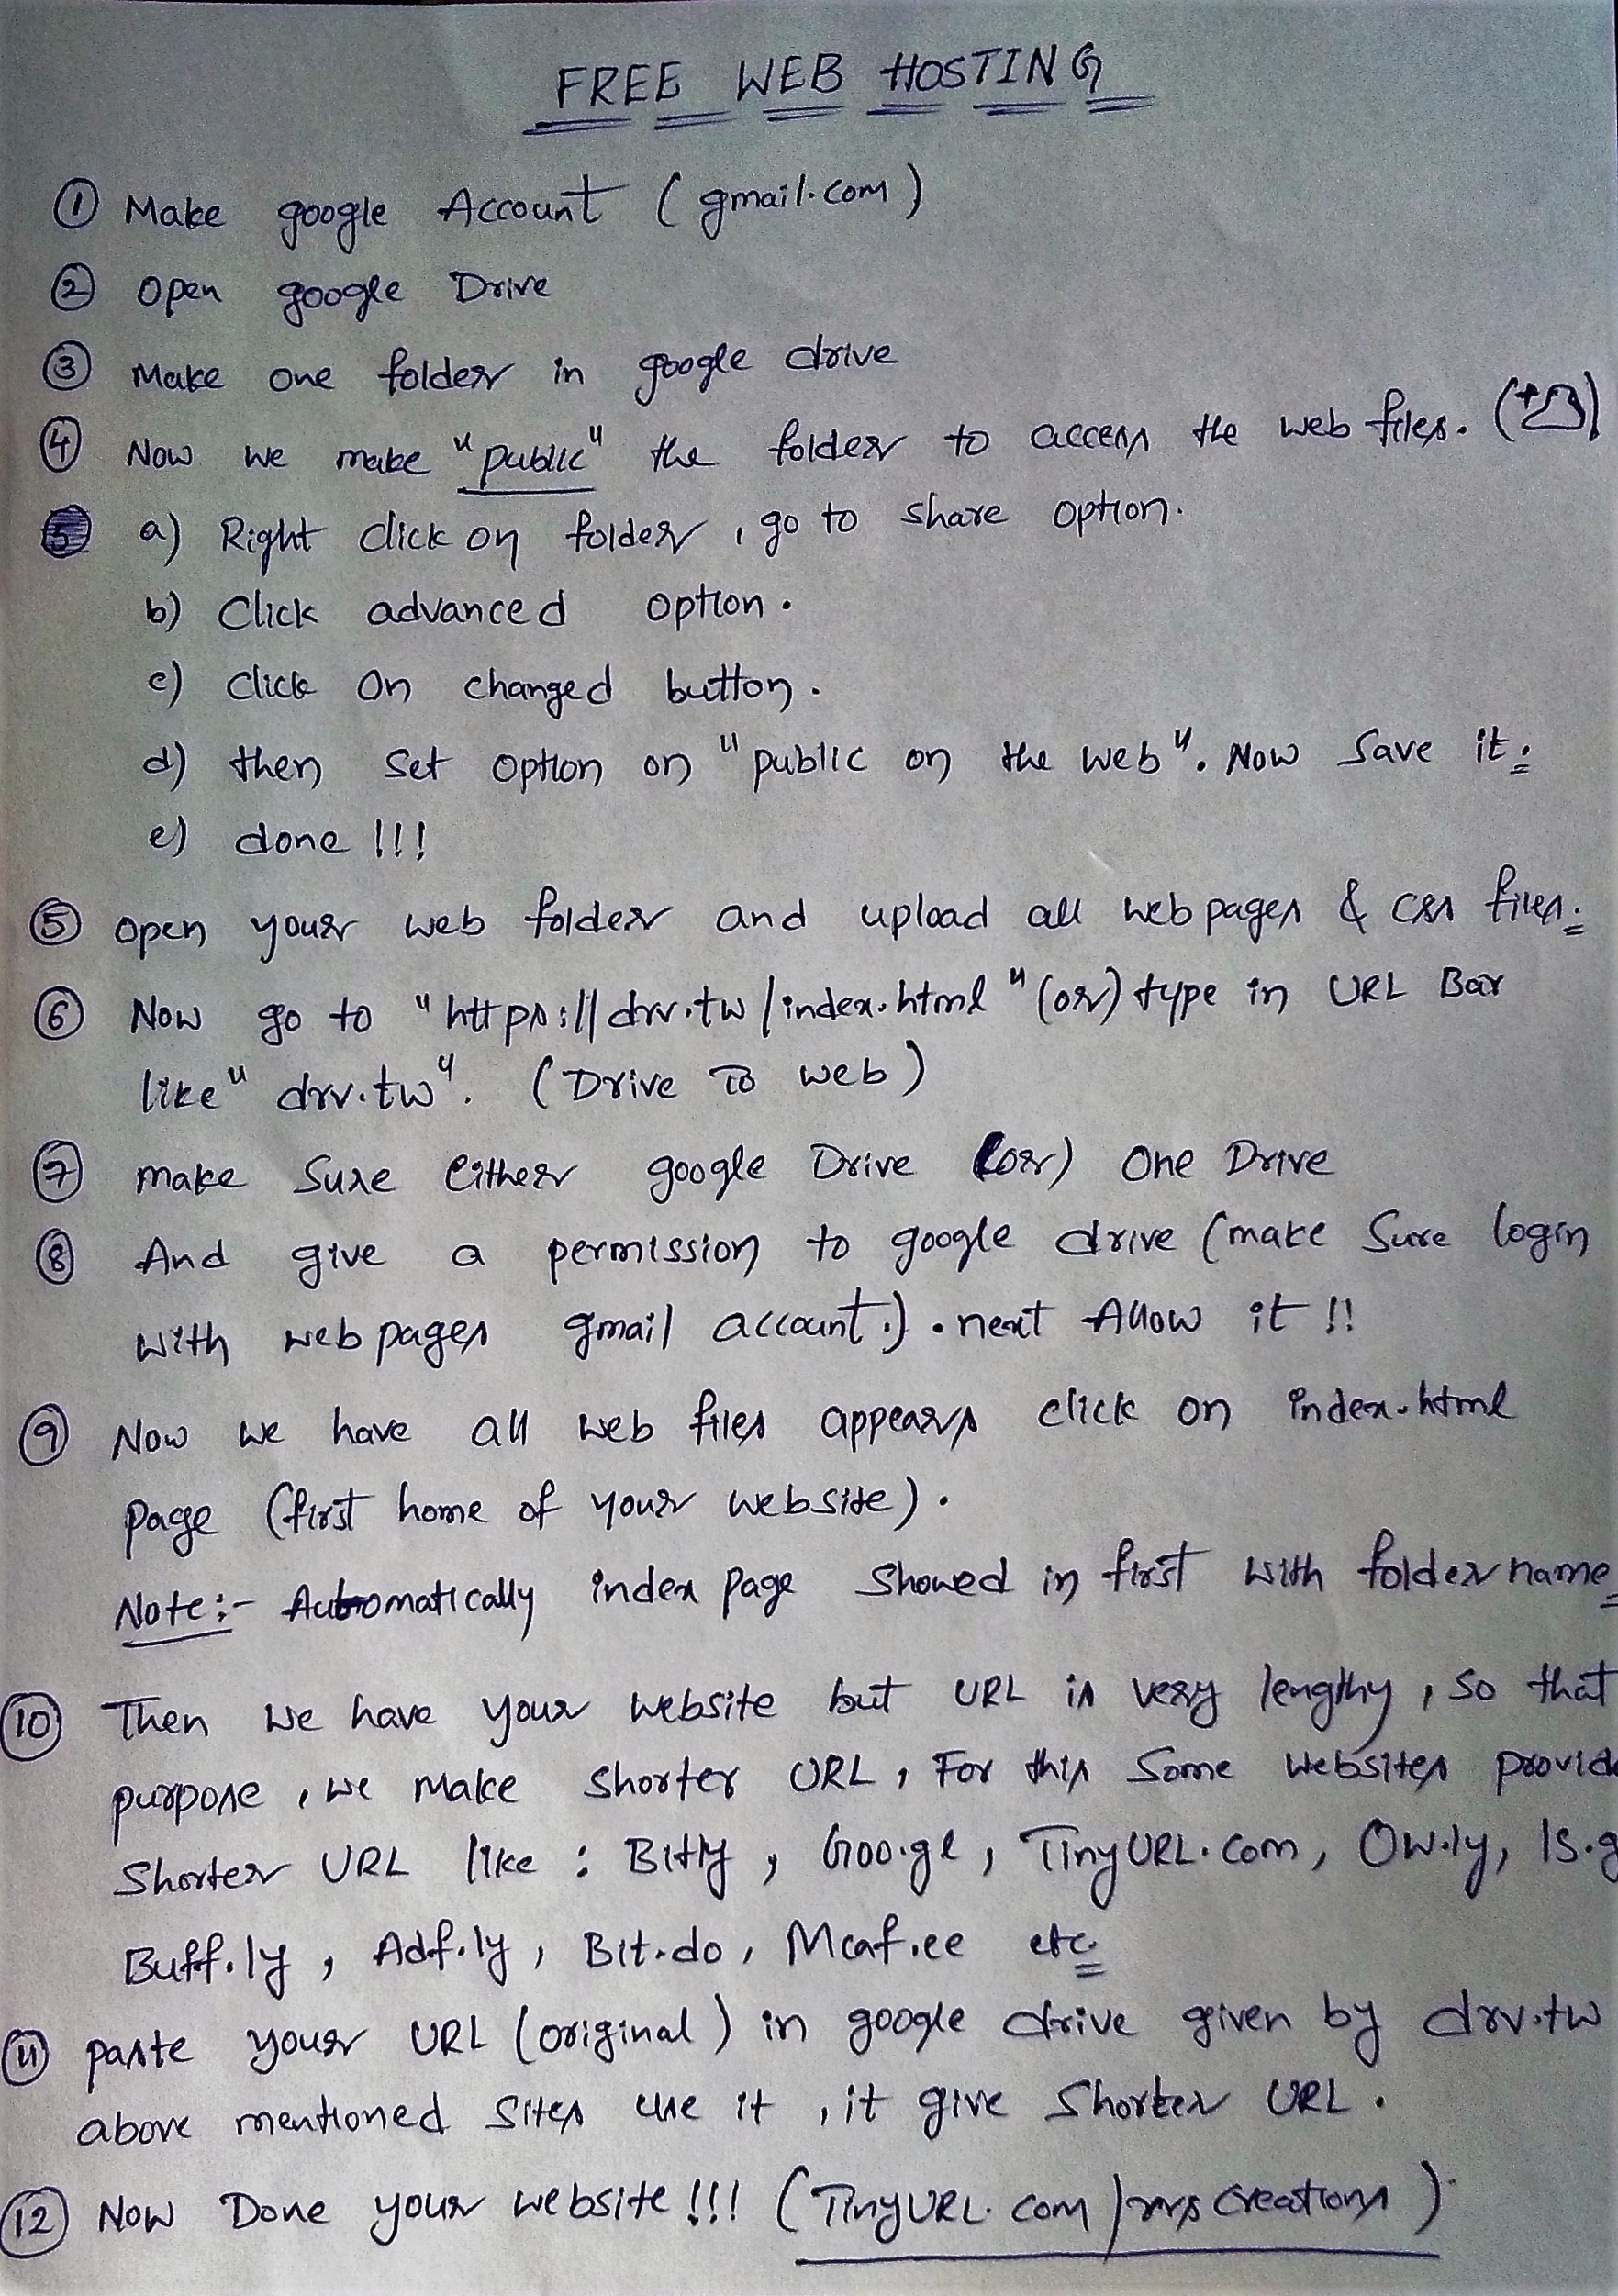 FREE WEB HOSTING
① Make google Account (gmail.com)
② Open google Drive
③ Make one folder in google drive
④ Now we make "public" the folder to access the web files. (+
a) Right click on folder, go to share option.
b) Click advanced option.
c) Click On changed button.
d) then Set option on "public on the web". Now Save it.
e) done !!!
⑤ Open your web folder and upload all web pages & css files.
⑥ Now go to "https://drv.tw/index.html" (or) type in URL Bar
like "drv.tw". (Drive To web)
⑦ make Sure Either google Drive (or) One Drive
⑧ And give a permission to google drive (make Sure login
with web pages gmail account.). next Allow it !!
⑨ Now we have all web files appears click on index.html
page (first home of your website).
Note:- Automatically index page Showed in first with folder name
⑩ Then we have your website but URL is very lengthy, so that
purpose, we make shorter URL, For this Some websites provide
Shorter URL like : Bitly, Goo.gl, TinyURL.com, Ow.ly, Is.g
Buff.ly, Adf.ly, Bit.do, Mcaf.ee etc.
⑪ paste your URL (original) in google drive given by drv.tw
above mentioned Sites use it, it give Shorter URL.
⑫ Now Done your website !!! (TinyURL.com/ )